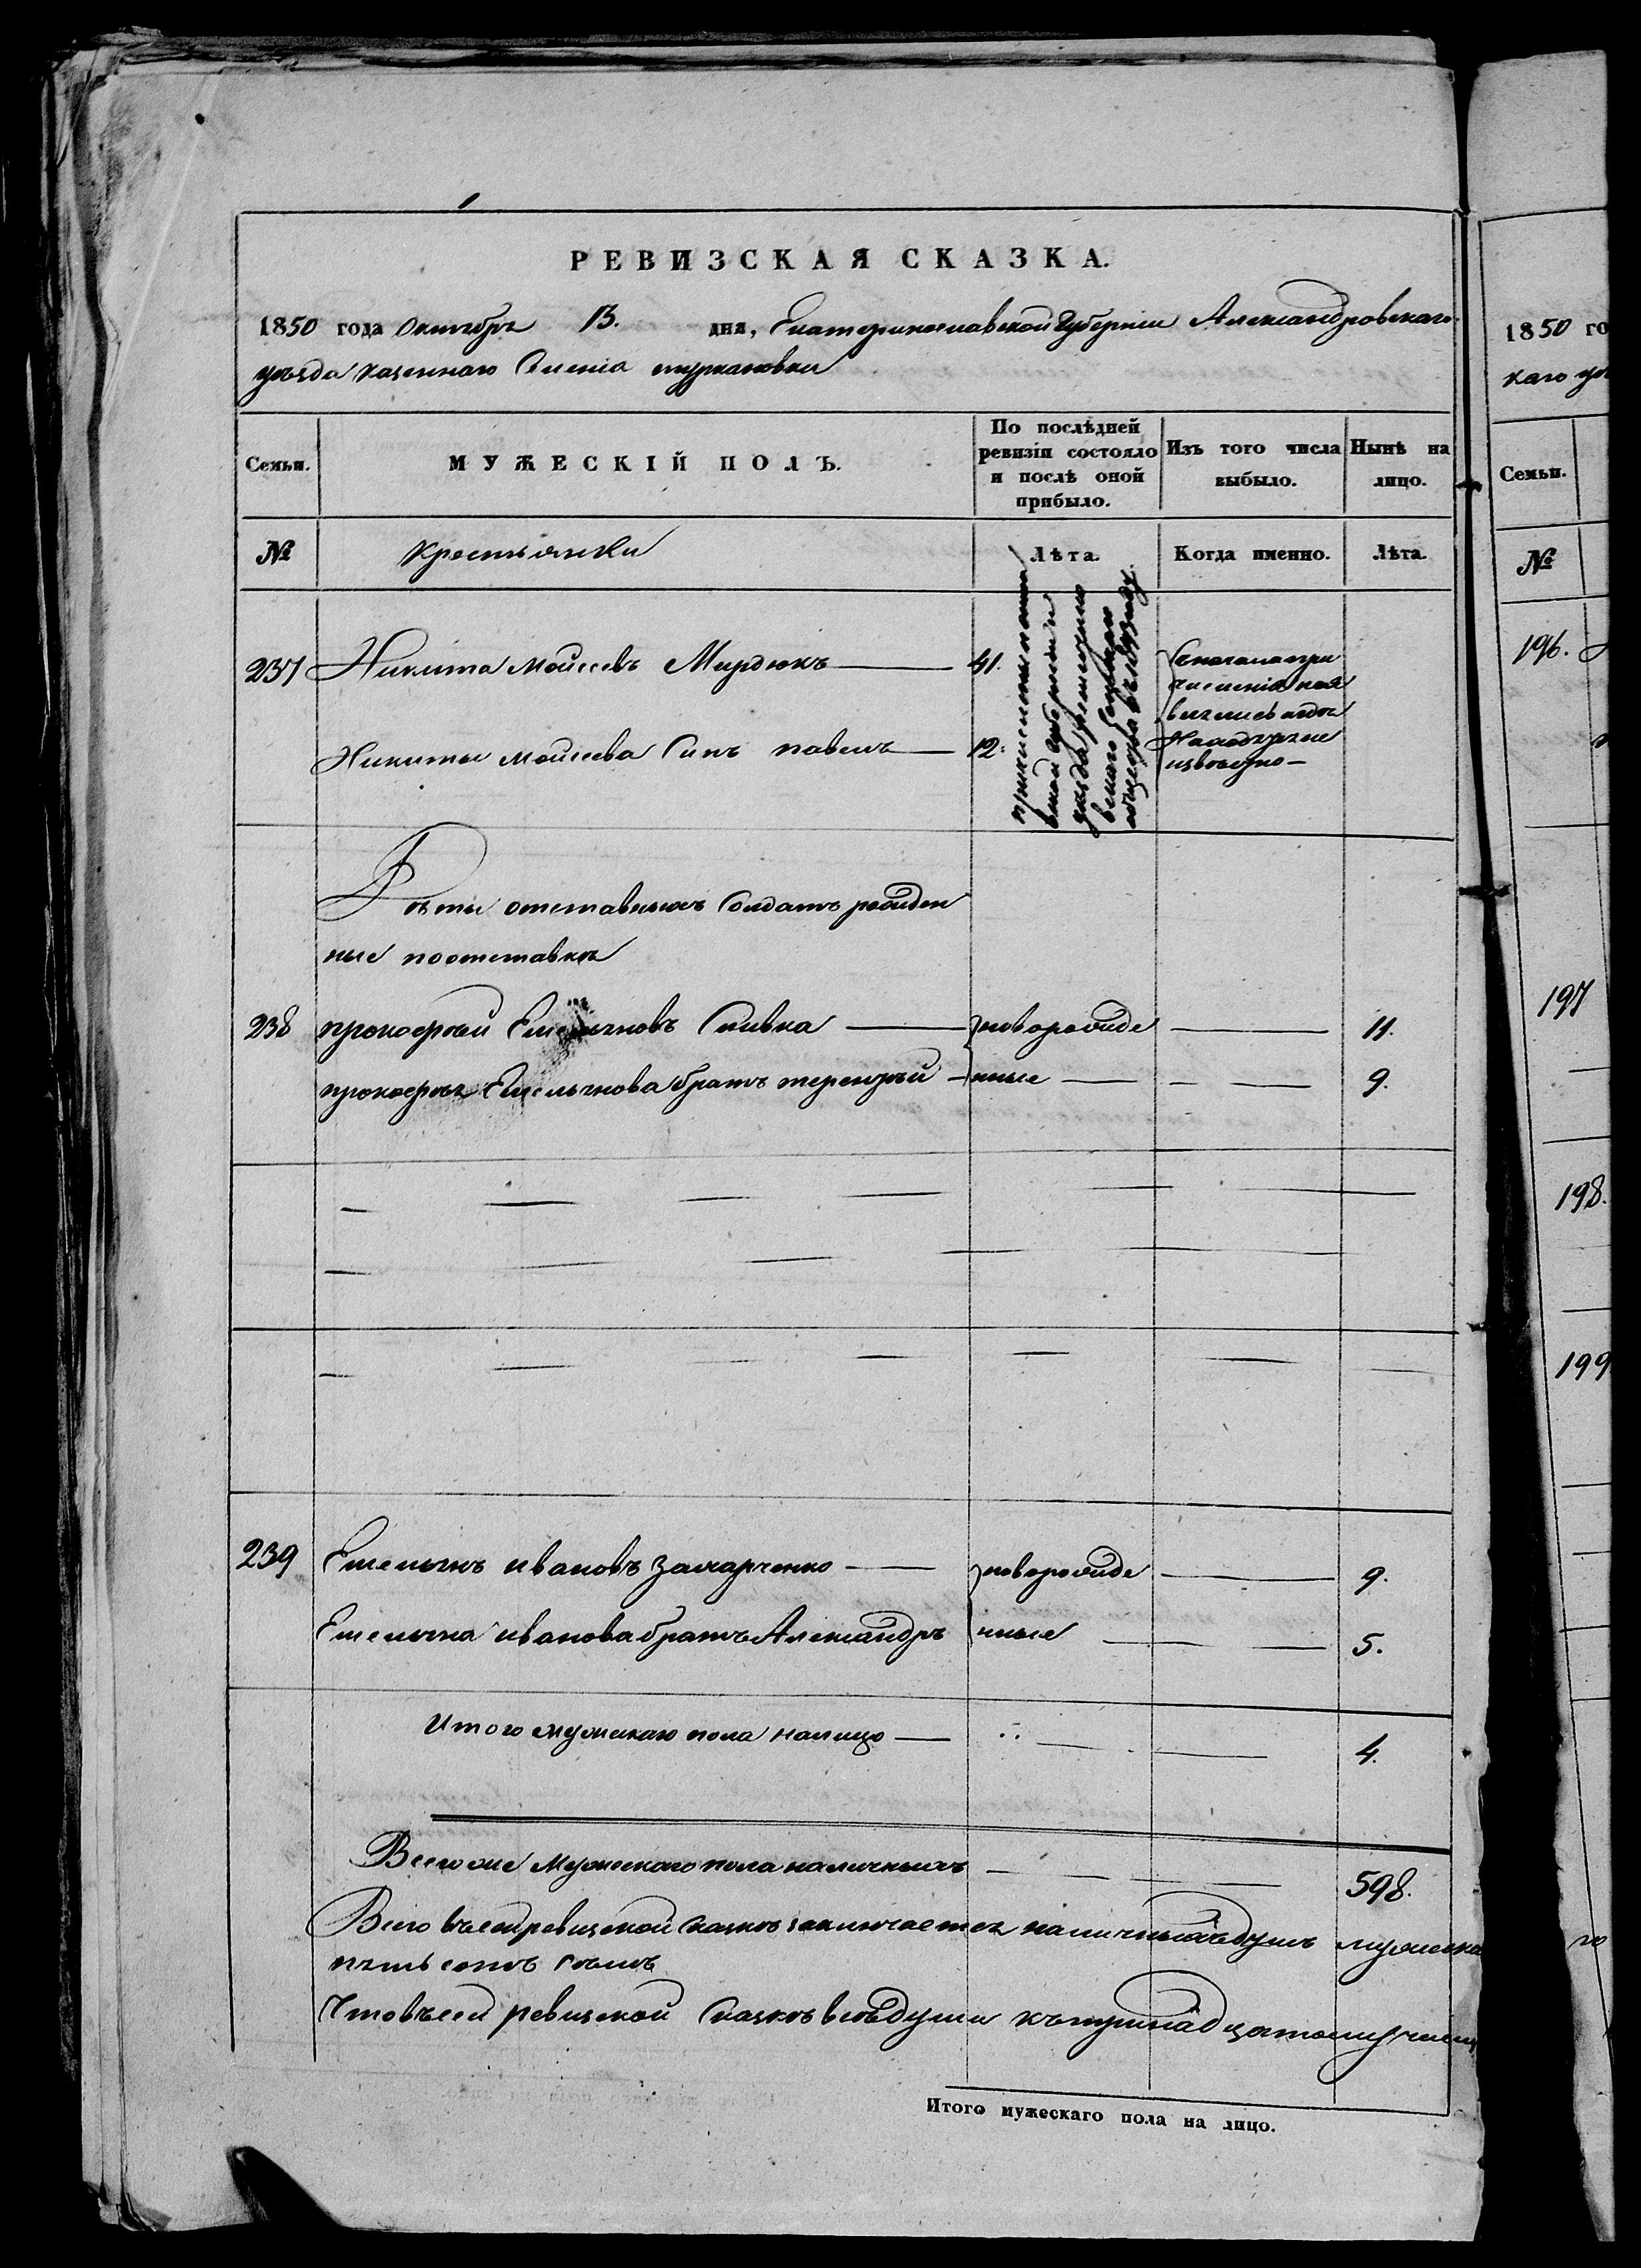 РЕВИЗСКАЯ СКАЗКА.
1850 года Октября 13. дня, Екатеринославской Губерніи Александровскаго
уѣзда казеннаго Селенія
Семьи.
МУЖЕСКІЙ ПОЛЪ.
По послѣдней
ревизіи состояло
и послѣ оной
прибыло.
Изъ того числа
выбыло.
Нынѣ на
лицо.
№
Крестьянки
Лѣта.
Когда именно.
Лѣта.
237 Никита Моисеевъ Мирдюкъ 41.
Никиты Моисеева Сынъ павелъ 12.
уѣзда
въ 1843 году.
Сначала при
численія не
явились а гдѣ
находятся не
извѣстно
Дѣти отставныхъ Солдатъ рожден
ные поотставкѣ
238 прокофій Емельяновъ Сливка новорожде 11.
прокофья Емельянова братъ терентій нные 9.
239 Емельянъ ивановъ Захарченко новорожде 9.
Емельяна иванова братъ Александръ нные 5.
Итого мужскаго пола налицо 4.
Всего же мужескаго пола наличныхъ 598.
Всего въ сей ревизской Сказкѣ заключается наличныхъ душъ мужеска
пять сотъ
Что въ сей ревизской Сказкѣ всѣ души
Итого мужескаго пола на лицо.
1850 го
каго уѣ
Семьи.
№
196.
197
198.
199